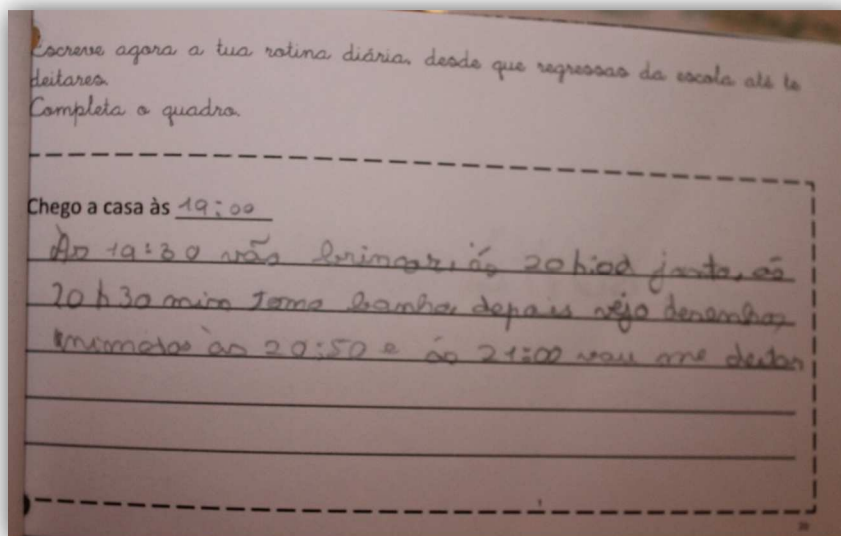 Escreve agora a tua rotina diária, desde que regressas da escola até te
deitares.
Completa o quadro.
Chego a casa às 19:00
Às 19:30 vão brincar, ás 20h:00 janto, ás
20h30 min tomo banho, depois vejo desenhos
animados às 20:50 e ás 21:00 vou me deitar